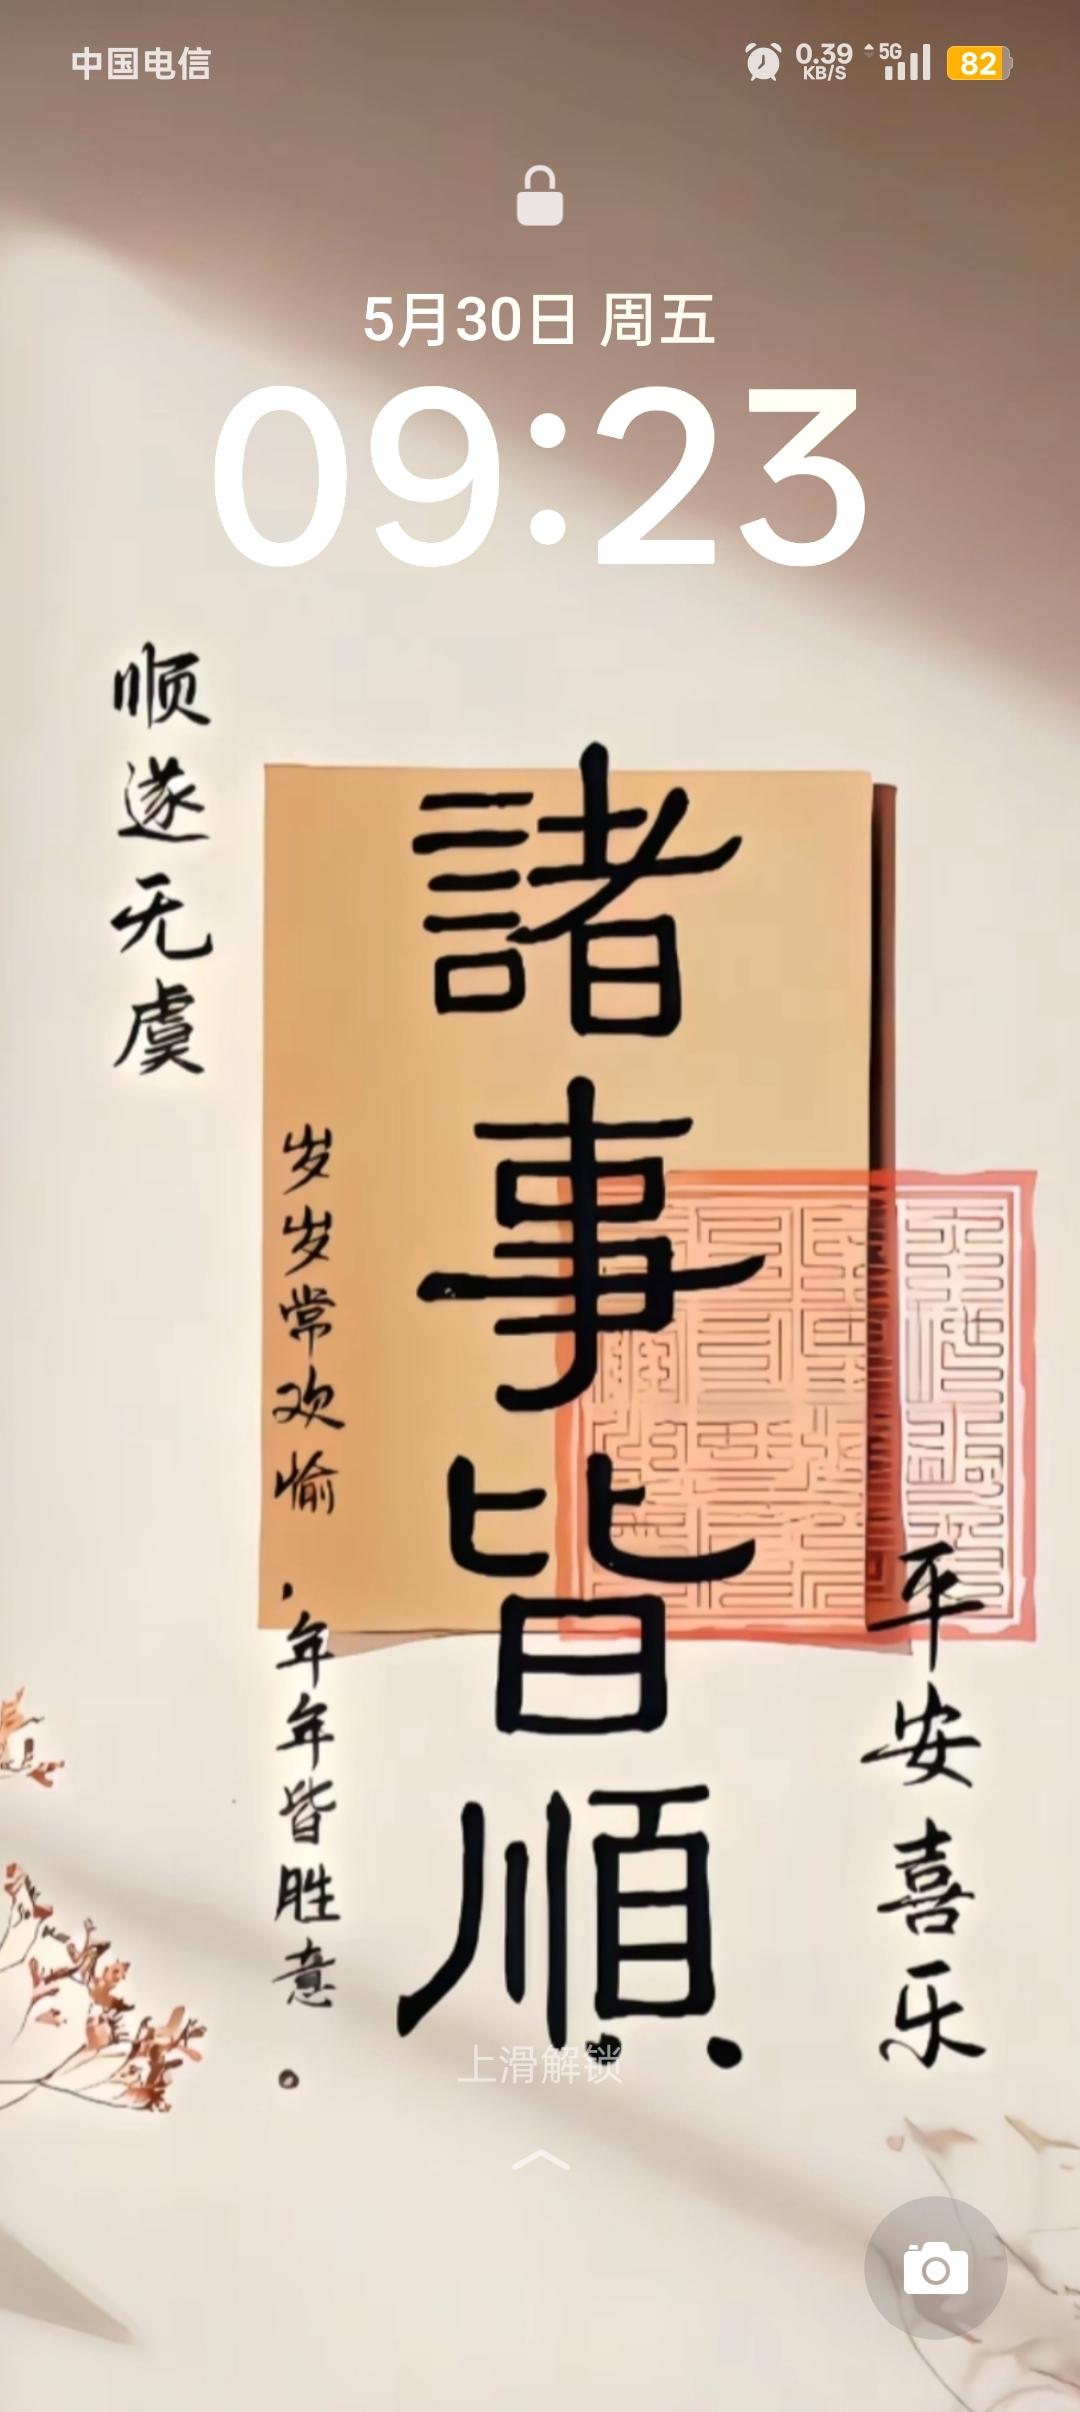 中国电信
0.39 KB/S
5G
82
5月30日 周五
09:23
顺遂无虞
諸事皆順
岁岁常欢愉
，年年皆胜意
。
平安喜乐
上滑解锁